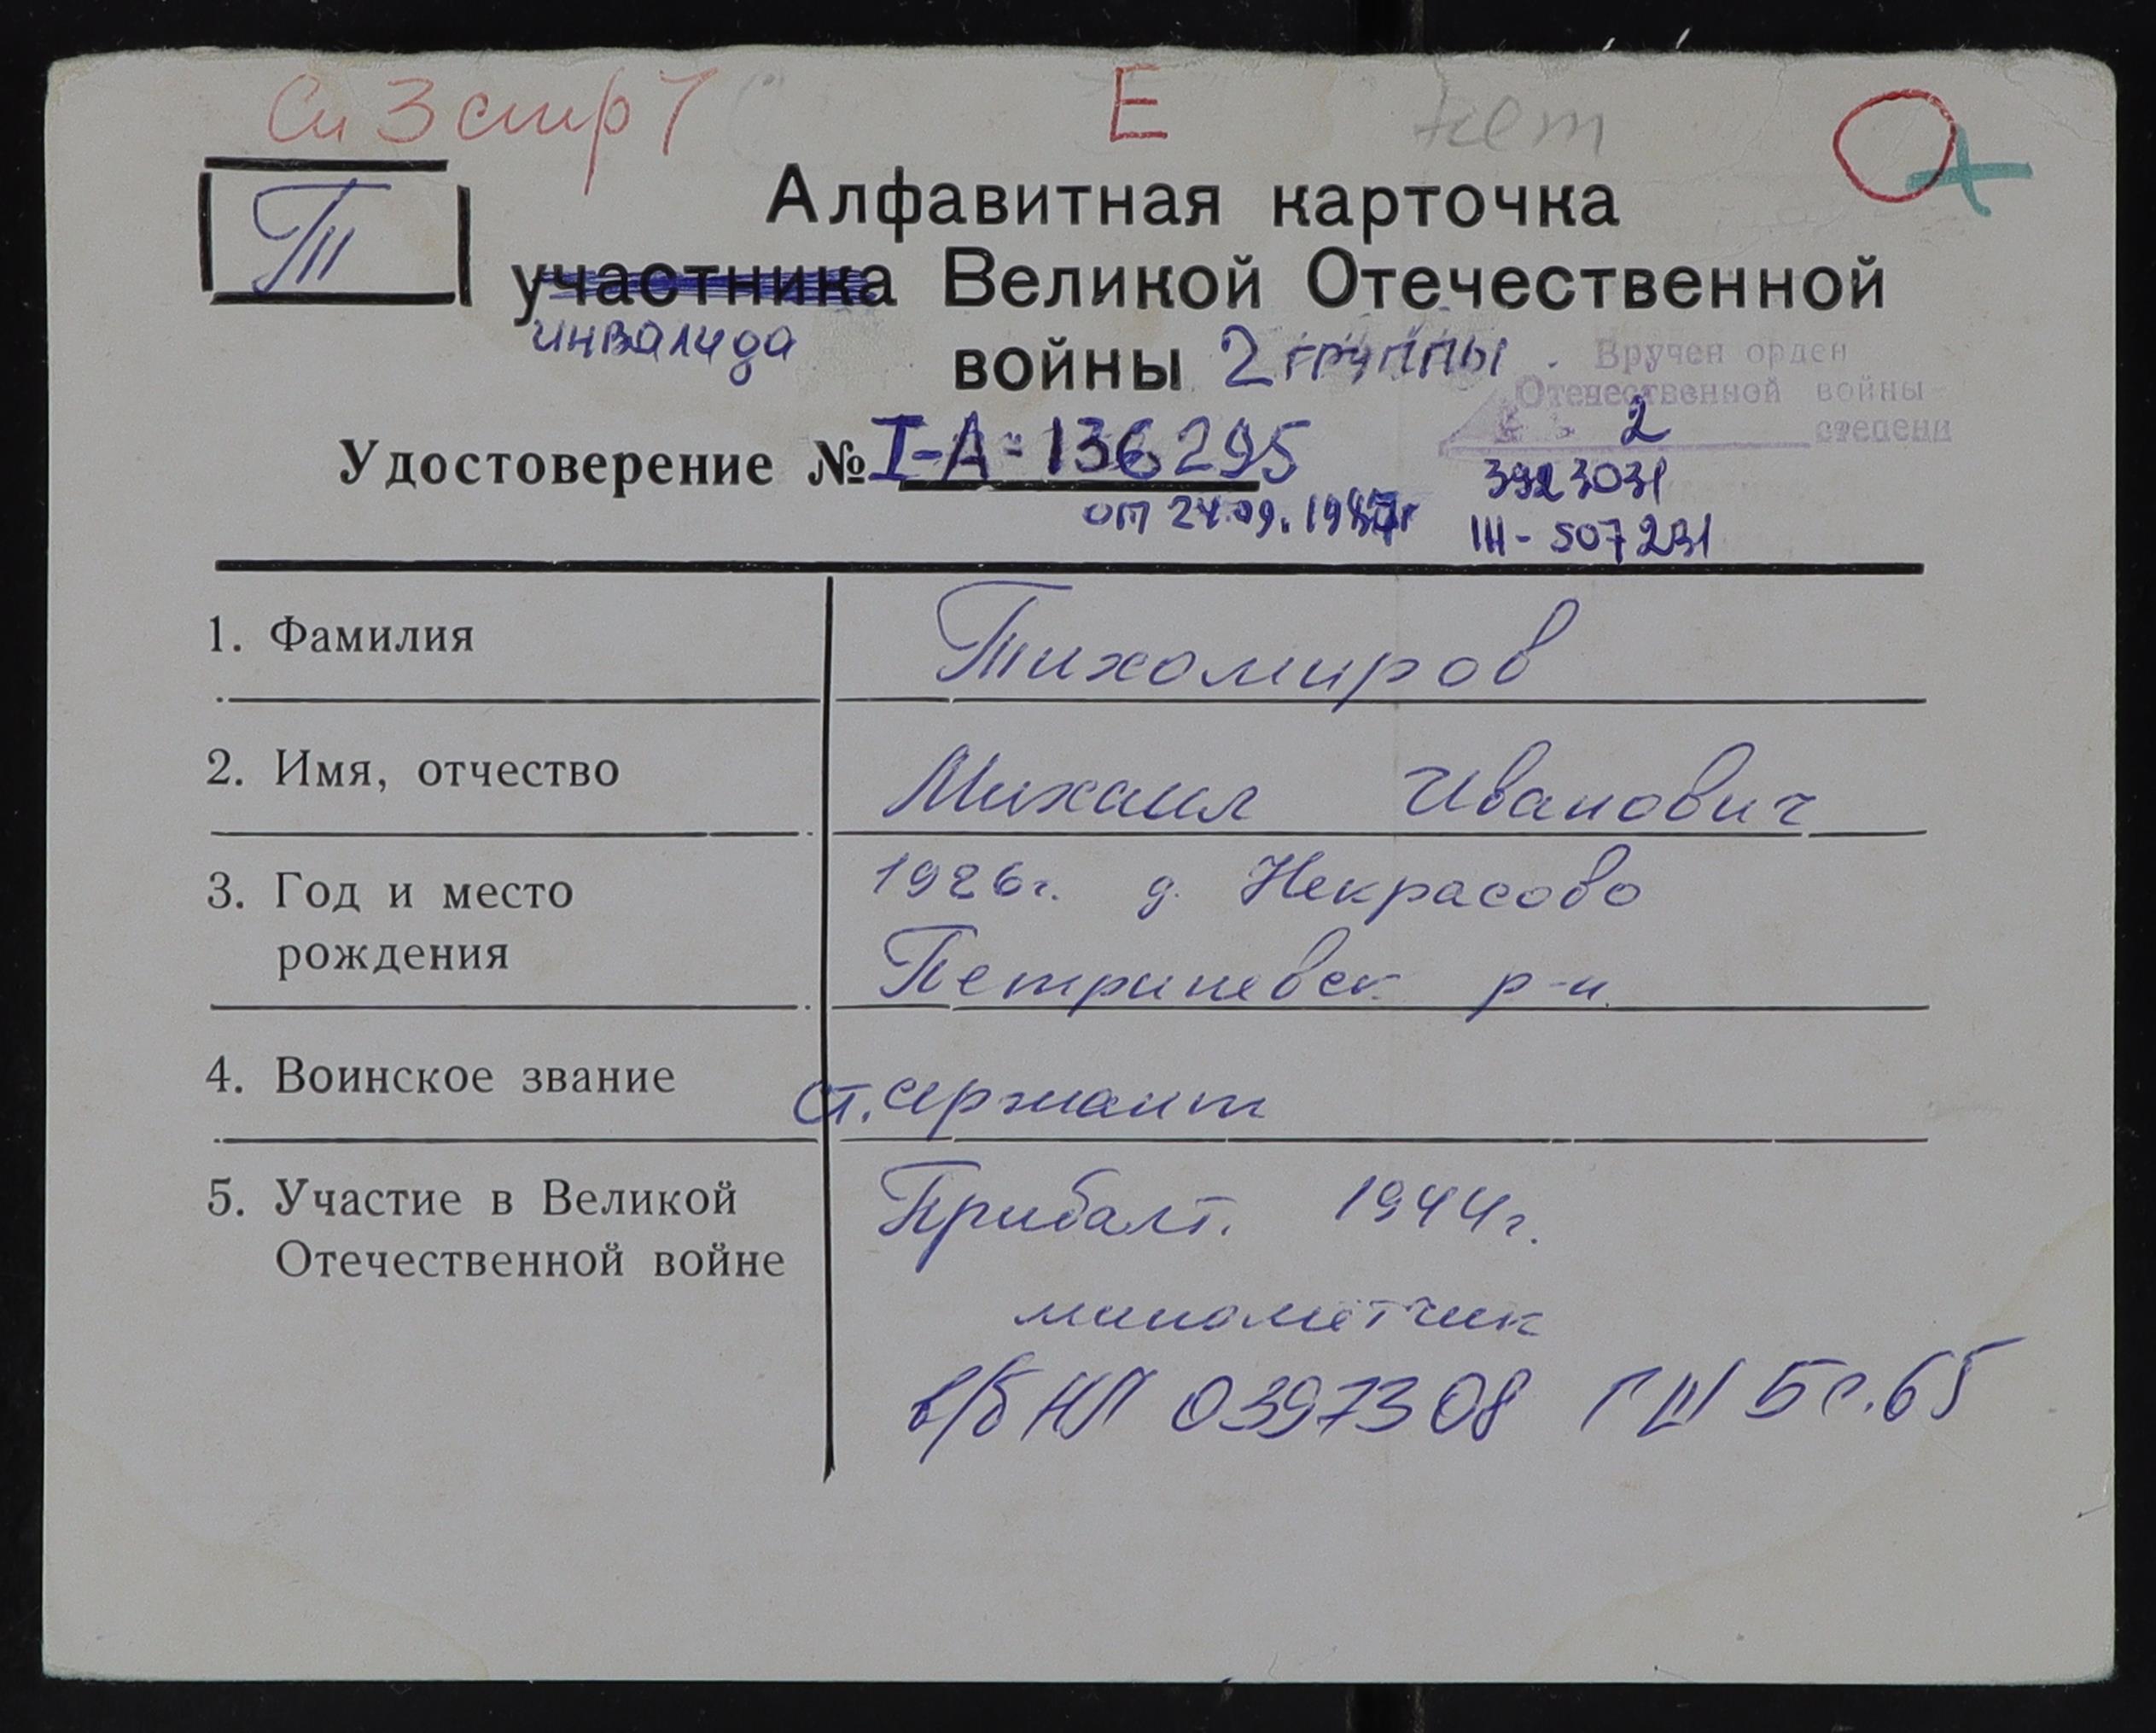 Сп 3 стр 7
Е
нет
Т
Алфавитная карточка
участника Великой Отечественной
инвалида
войны 2 группы
Вручен орден
Отечественной войны
2 степени
Удостоверение № I-А-136295
от 24.09.1987г
3923031
III-507231
1. Фамилия Тихомиров
2. Имя, отчество Михаил Иванович
3. Год и место 1926г. д. Некрасово
рождения Петриневск р-н.
4. Воинское звание ст. сержант
5. Участие в Великой Прибалт. 1944г.
Отечественной войне
минометчик
в/б НП 0397308 ГШ 5с.65